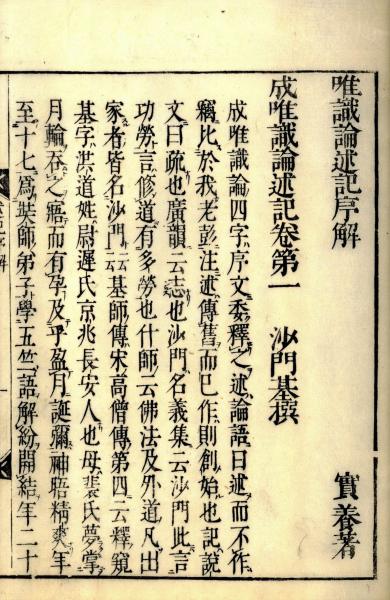 唯識論述記序解
實養著
成唯識論述記卷第一　沙門基撰
成唯識論四字序文委釋之述論語曰述而不作
竊比於我老彭注述傳舊而巳作則創始也記說
文曰疏也廣韻云志也沙門名義集云沙門此言
功勞言修道有多勞也什師云佛法及外道凡出
家者皆名沙門云云基師傳宋高僧傳第四云釋窺
基字洪道姓尉遲氏京兆長安人也母裴氏夢掌
月輪吞之寤而有孕及乎盈月誕彌神晤精爽年
至十七爲奘師弟子學五竺語解紛開結年二十